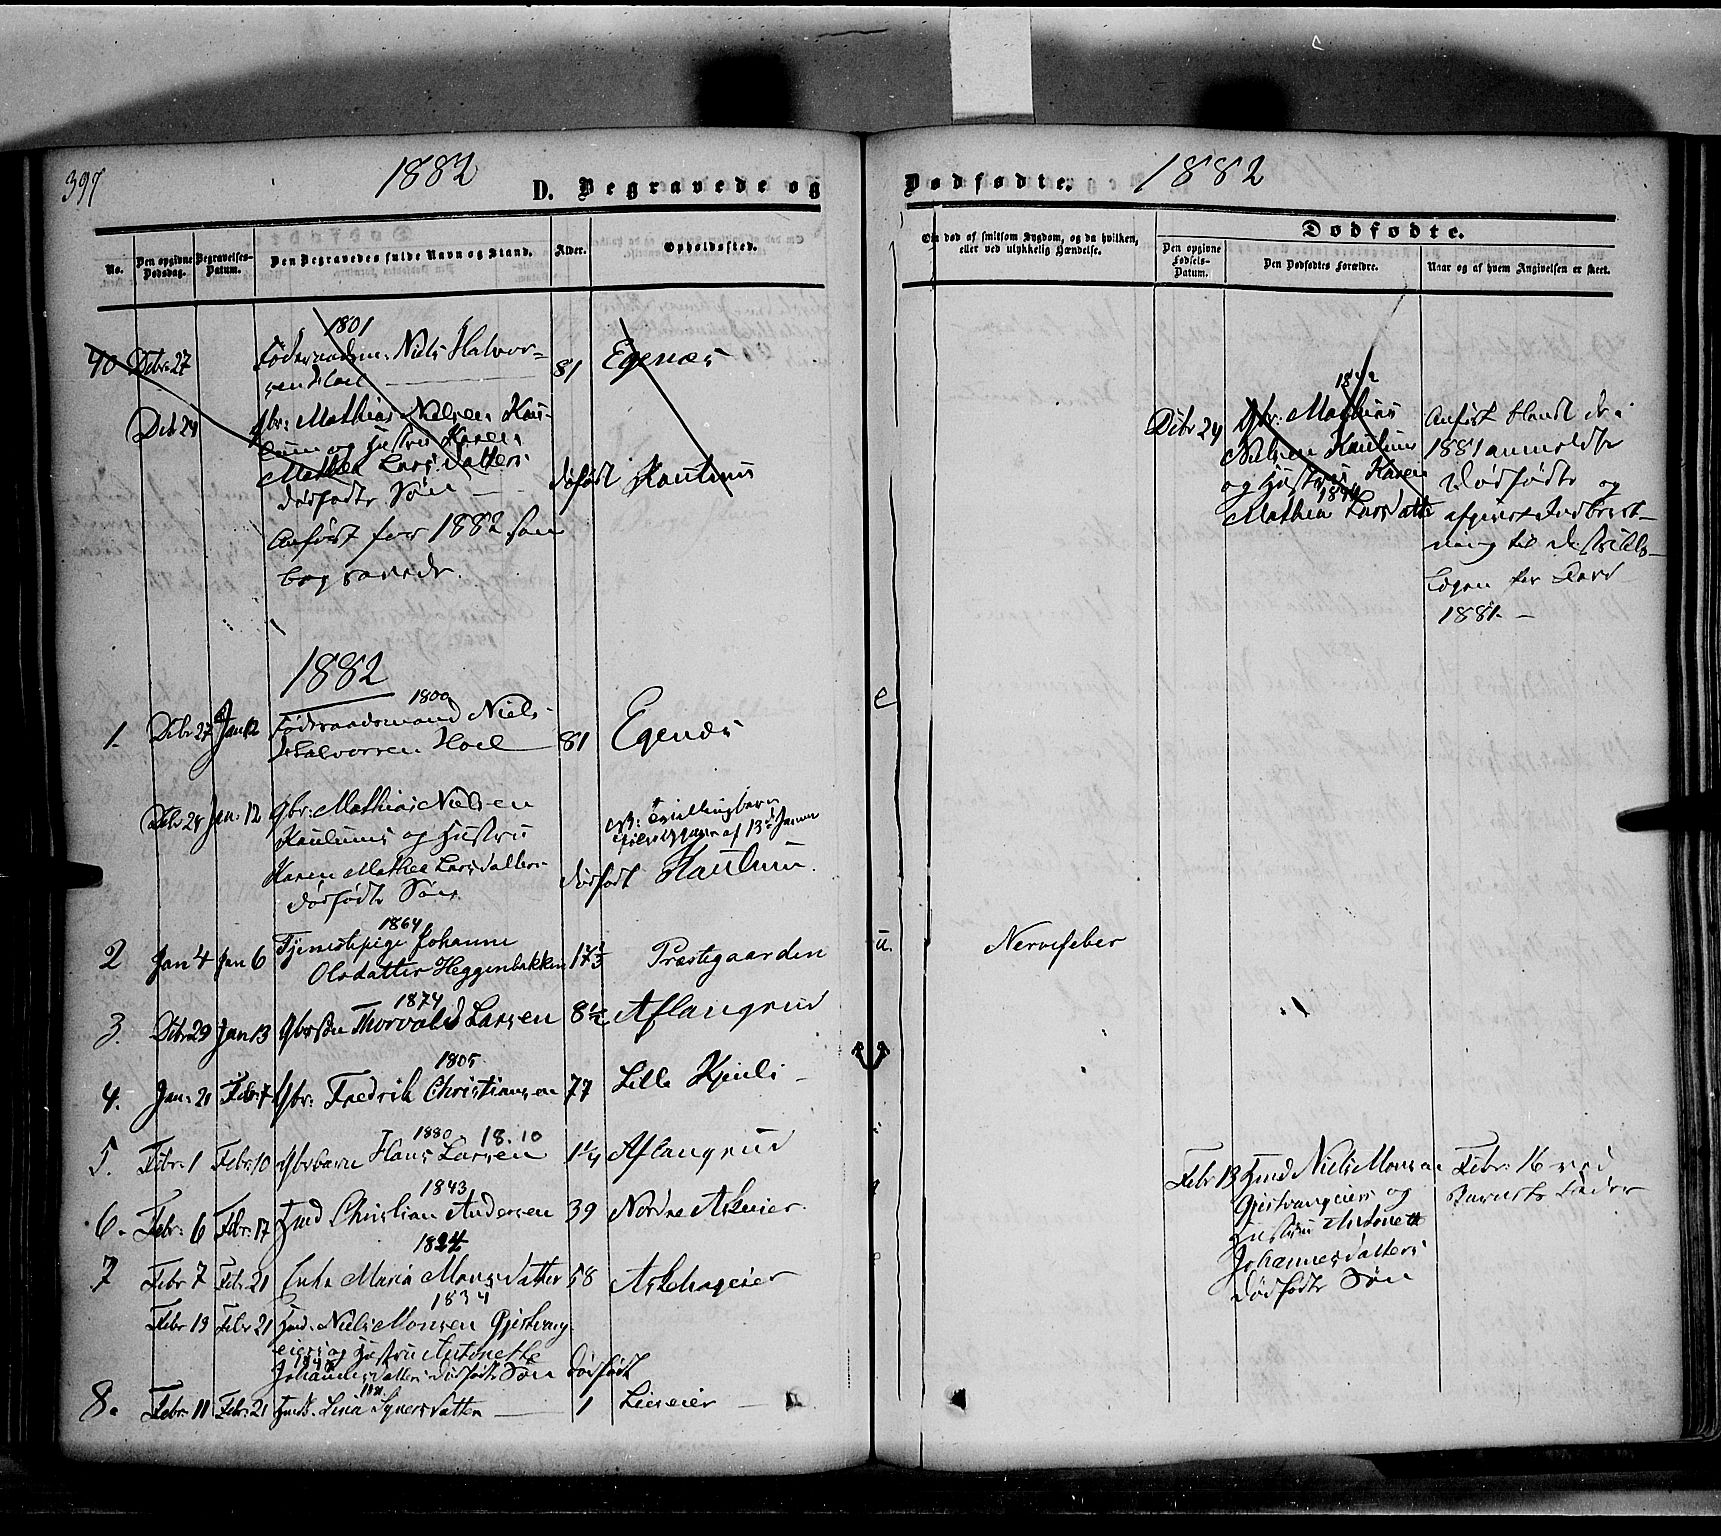 397
1882
D. Begravede og
No.
Den opgivne Dødsdag.
Begravelses-Datum.
Den Begravedes fulde Navn og Stand.
Alder.
Opholdssted.
1801
40 Debr 27 Føderaadsm: Niels Halvor- 81 Egenæs
sen Hoel
Debr 24 Gbr: Mathias Nielsen Kau-
lum og Hustru Karen
Mathea Larsdatters
dødfødte Søn dødfødt Kaulum
Anført for 1882 som
begravede.
1882
1800
1. Debr 27 Jan 12 Føderaadsmand Niels
Halvorsen Hoel 81 Egenæs
Debr 24 Jan. 12 Gbr: Mathias Nielsen
Kaulums og Hustru
Karen Mathea Larsdatters
dødfødte Søn dødfødt Kaulum.
NB: Tvillingbarn
af 13de Januar
1864
2 Jan 4 Jan 6 Tjenestepige Johanne
Olsdatter Heggenbakken 17 Præstegaarden
1874
3. Debr 29 Jan 13 Gbrsøn Thorvald Larsen 8½ Aslangrud
1805
4. Jan: 21 Febr: 7 Gbr: Fredrik Christiansen 77 Lille Kjenli
1880 18.10
5. Febr: 1 Febr: 10 Gbrbarn Hans Larsen 1¼ Aslangrud
1843
6. Febr: 6 Febr: 17 Hmd Christian Andersen 39 Nordre Askeier
1824
7 Febr 7 Febr. 21 Enke Maria Monsdatter 58 Askehageier
1834
Febr 13 Febr 21 Hmd. Niels Monsen Gjestvang-
eiers og Hustru Antonette
Johannesdatters dødfødte Søn dødfødt
8. Febr: 11 Febr: 21 Hmds. Lina Syversdatter 1 Lieeier
Dødfødte.
1882
Om død af smitsom Sygdom, og da hvilken, eller ved ulykkelig Hændelse.
Dødfødte.
Den opgivne Fødsels-Datum.
Den Dødfødtes Forældre.
Naar og af hvem Angivelsen er skeet.
Debr 24 Gbr: Mathias
Nielsen Kaulum
og Hustru Karen
Mathea Larsdatter
Anført blandt de i
1881 anmeldte
Dødfødte og
afgivet Indberet-
ning til Distrikts-
Lægen for Aaret
1881.
Nervefeber
Febr 13 Hmd Niels Monsen
Gjestvangeiers og
Hustru Antonette
Johannesdatters
dødfødte Søn
Febr: 16 ved
Barnets Fader